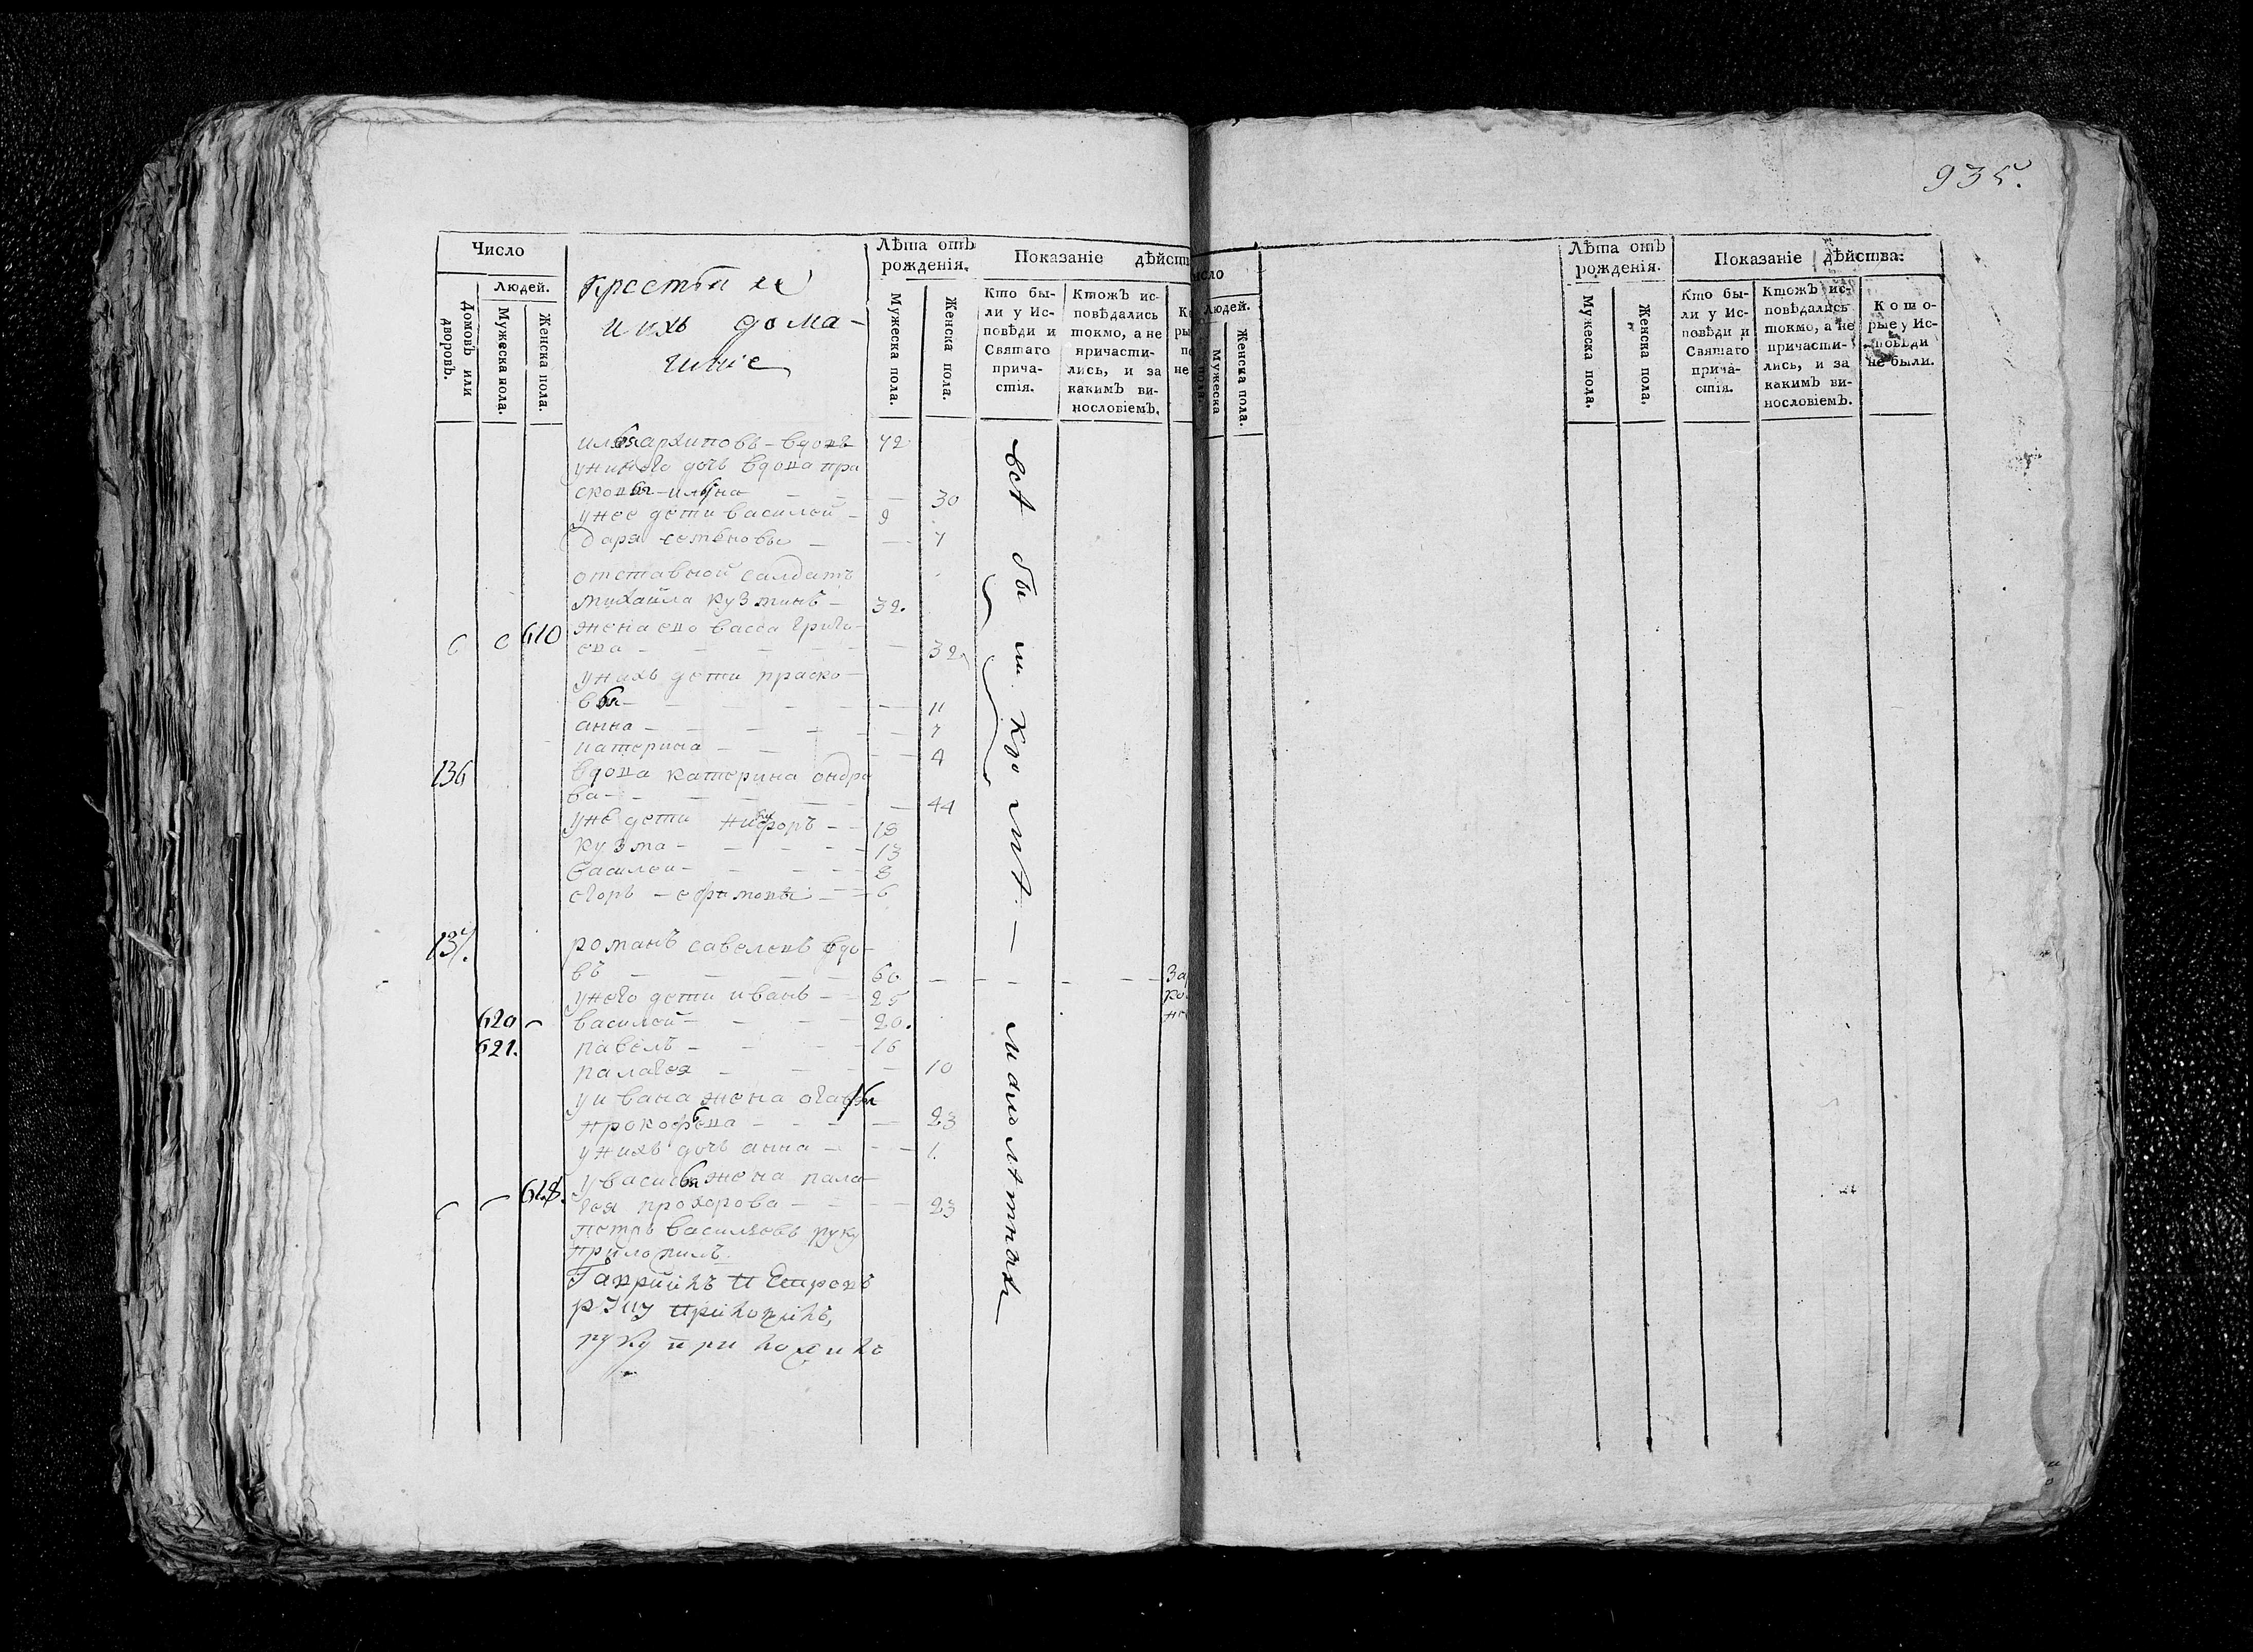 935.
Число
Лѣта отъ рожденія.
Показаніе дѣйств
Людей.
Домовъ или дворовъ.
Мужеска пола.
Женска пола.
крестьяне
и ихъ дома-
шніе
Мужеска пола.
Женска пола.
Кто бы-
ли у Ис-
повѣди и
Святаго
прича-
стія.
Ктожъ ис-
повѣдались
токмо, а не
причасти-
лись, и за
какимъ ви-
нословіемъ.
илья архиповъ – вдовъ 72
у него дочь вдова пра
сковья – ильина – – – 30
у нее дети василей – 9
дарья семеновы – – 7
отставной салдатъ
михайла кузминъ – 32.
610 жена ево васса григо-
ева – – – – – 32
у нихъ дети праско-
вья – – – – – 11
анна – – – – – 7
катерина – – – 4
136 вдова катерина ондре
ва – – – – – 44
у не дети никифоръ – – 18
кузма – – – – – 13
василеи – – – – – 8
егоръ – ефимовы – – 6
137. романъ савелевъ вдо-
въ – – – – 60 – – – – –
у него дети иванъ – – 25
620 василей – – – – 20.
621. павелъ – – – – 16
палагея – – – – 10
у ивана жена огафья
прокофьева – – – – 23
у нихъ дочь анна – – – 1.
618. у василья жена пала-
гея прохорова – – – – 23
петръ васильевъ руку
приложилъ
Гаврiилъ Петровъ
руку приложилъ,
руку приложилъ
всѣ были кромѣ – малолѣтныхъ
Людей.
Мужеска пола.
Женска пола.
Лѣта отъ
рожденія.
Показаніе дѣйства:
Мужеска пола.
Женска пола.
Кто бы-
ли у Ис-
повѣди и
Святаго
прича-
стія.
Ктожъ ис-
повѣдались
токмо, а не
причасти-
лись, и за
какимъ ви-
нословіемъ.
Кото-
рые у Ис-
повѣди
не были.